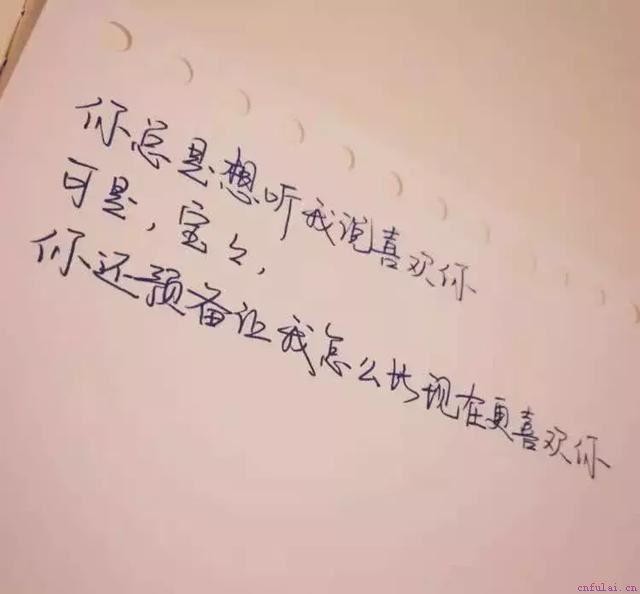 你总是想听我说喜欢你
可是，宝々，
你还预备让我怎么比现在更喜欢你
cnfulai.cn